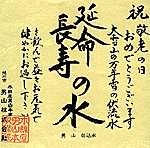 祝 敬老の日
おめでとうございます
大雪山の万年雪の伏流水
延命
長寿の水
を飲んで益々お元気で
健やかにお過し下さい
男山 仕込水
男山株式会社